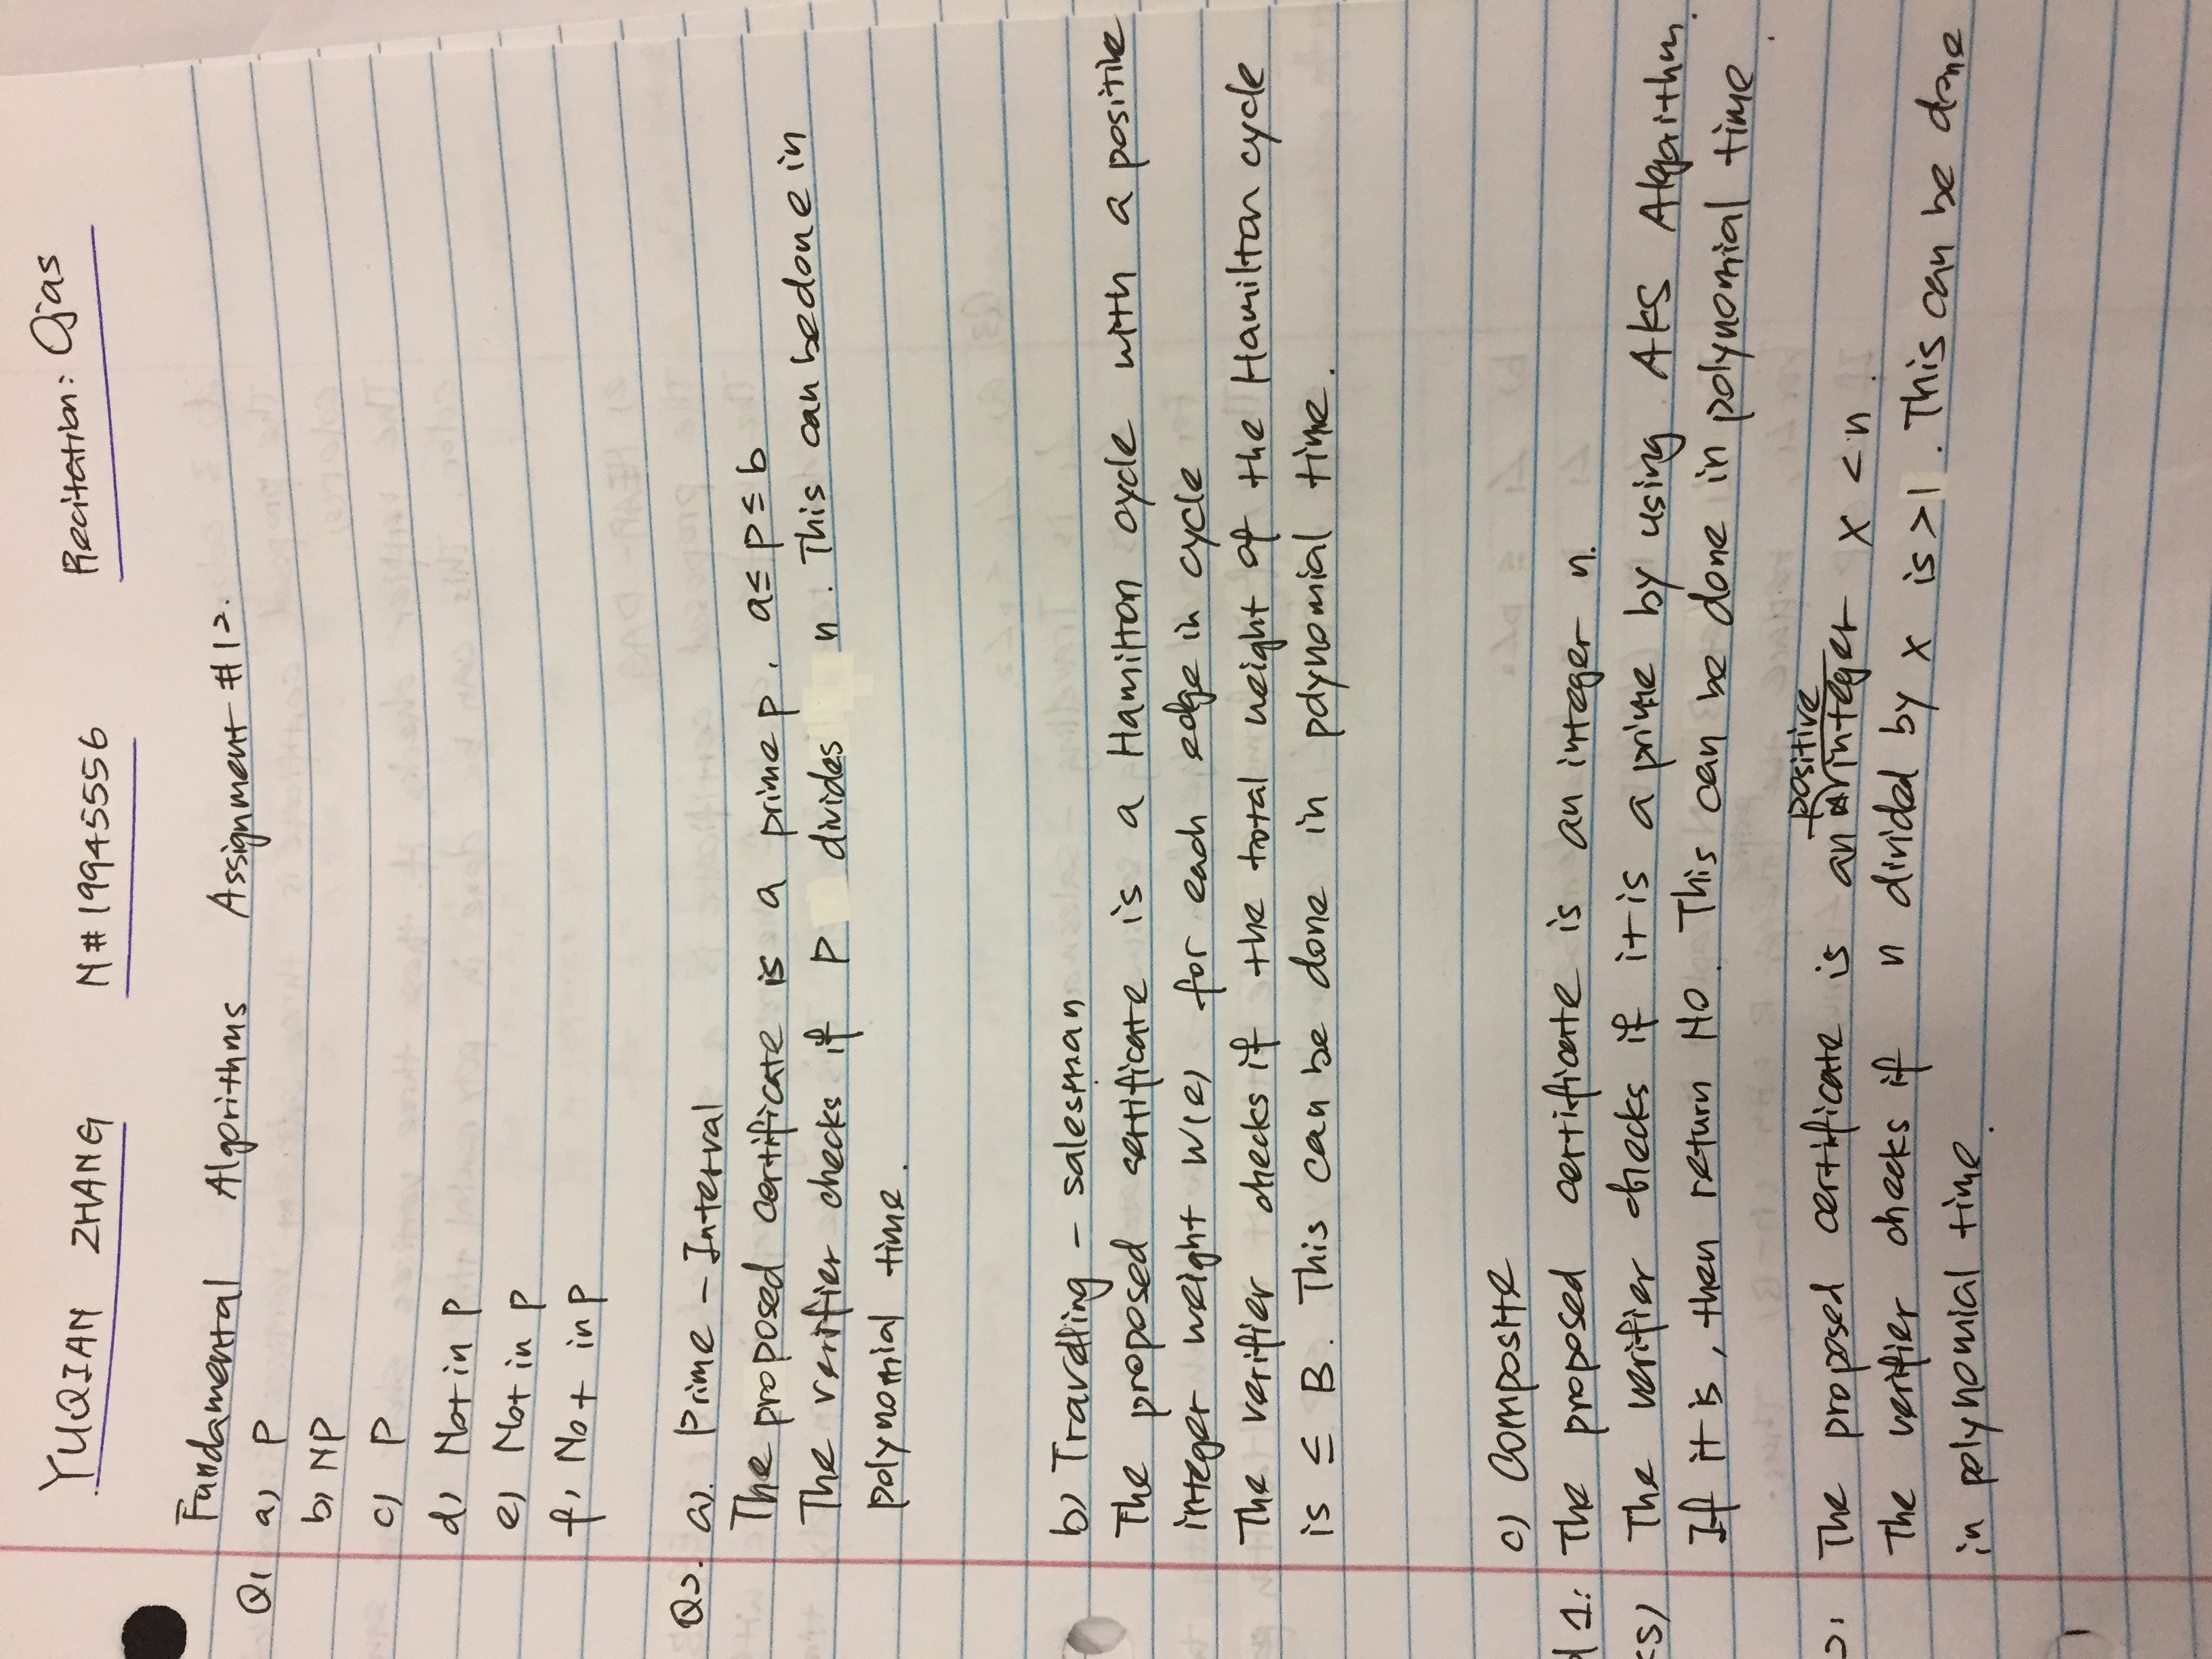 YUQIAN ZHANG N# 19945556 Recitation: Ojas
Fundamental Algorithms Assignment #12.
Q1 a) P
b) NP
c) P
d) Not in P
e) Not in P
f) Not in P
Q2. a). Prime - Interval
The proposed certificate is a prime p, a ≤ p ≤ b
The verifier checks if P divides n. This can be done in
polynomial time.
b) Travelling - salesman
The proposed certificate is a Hamilton cycle with a positive
integer weight w(e) for each edge in cycle
The verifier checks if the total weight of the Hamilton cycle
is ≤ B. This can be done in polynomial time.
c) Composite
1: The proposed certificate is an integer n.
The verifier checks if it is a prime by using AKS Algorithm.
If it is, then return NO. This can be done in polynomial time.
The proposed certificate is an positive integer x < n.
The verifier checks if n divided by x is >1. This can be done
in polynomial time.